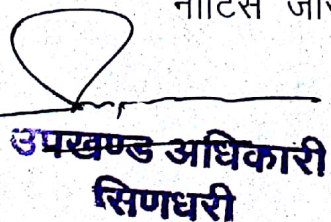 नोटिस
उपखण्ड अधिकारी
सिणधरी